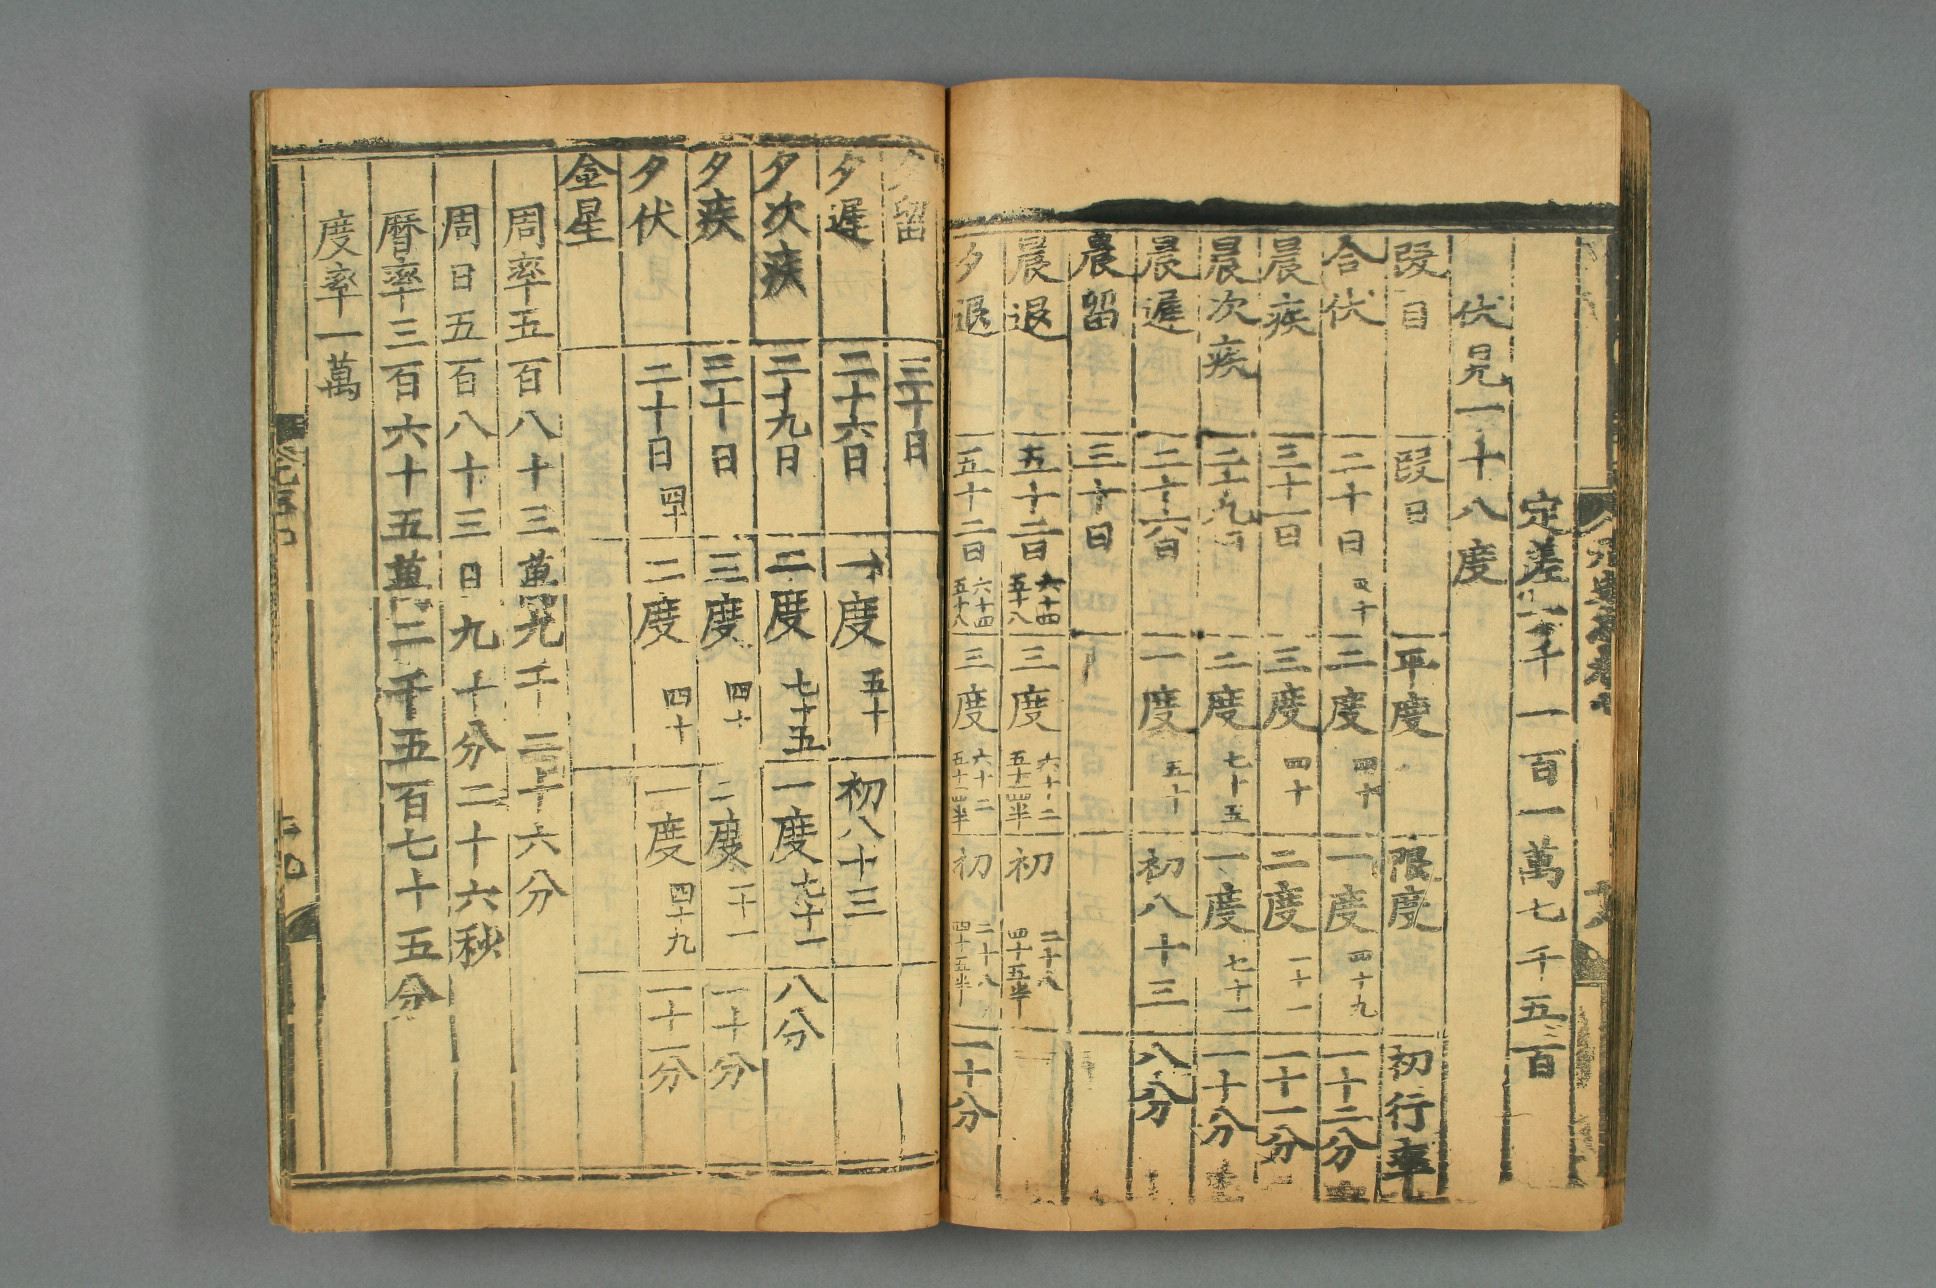 定差二千一百一萬七千五百
伏見一十八度
段目 段日 平度 限度 初行率
合伏 二十日四十 二度四十 一度四十九 一十二分
晨疾 三十一日 三度四十 二度一十一 一十一分
晨次疾 二十九日 二度七十五 一度七十一 一十分
晨遲 二十六日 一度五十 初八十三 八分
晨留 三十日
晨退 五十二日六十四五十八 三度六十二五十四半 初二十八四十五半
夕退 五十二日六十四五十八 三度六十二五十四半 初二十八四十五半 一十分
夕留 三十日
夕遲 二十六日 一度五十 初八十三
夕次疾 二十九日 二度七十五 一度七十一 八分
夕疾 三十日 三度四十 二度一十一 一十分
夕伏 二十日四十 二度四十 一度四十九 一十一分
金星
周率五百八十三萬九千二十六分
周日五百八十三日九十分二十六秋
曆率三百六十五萬二千五百七十五分
度率一萬